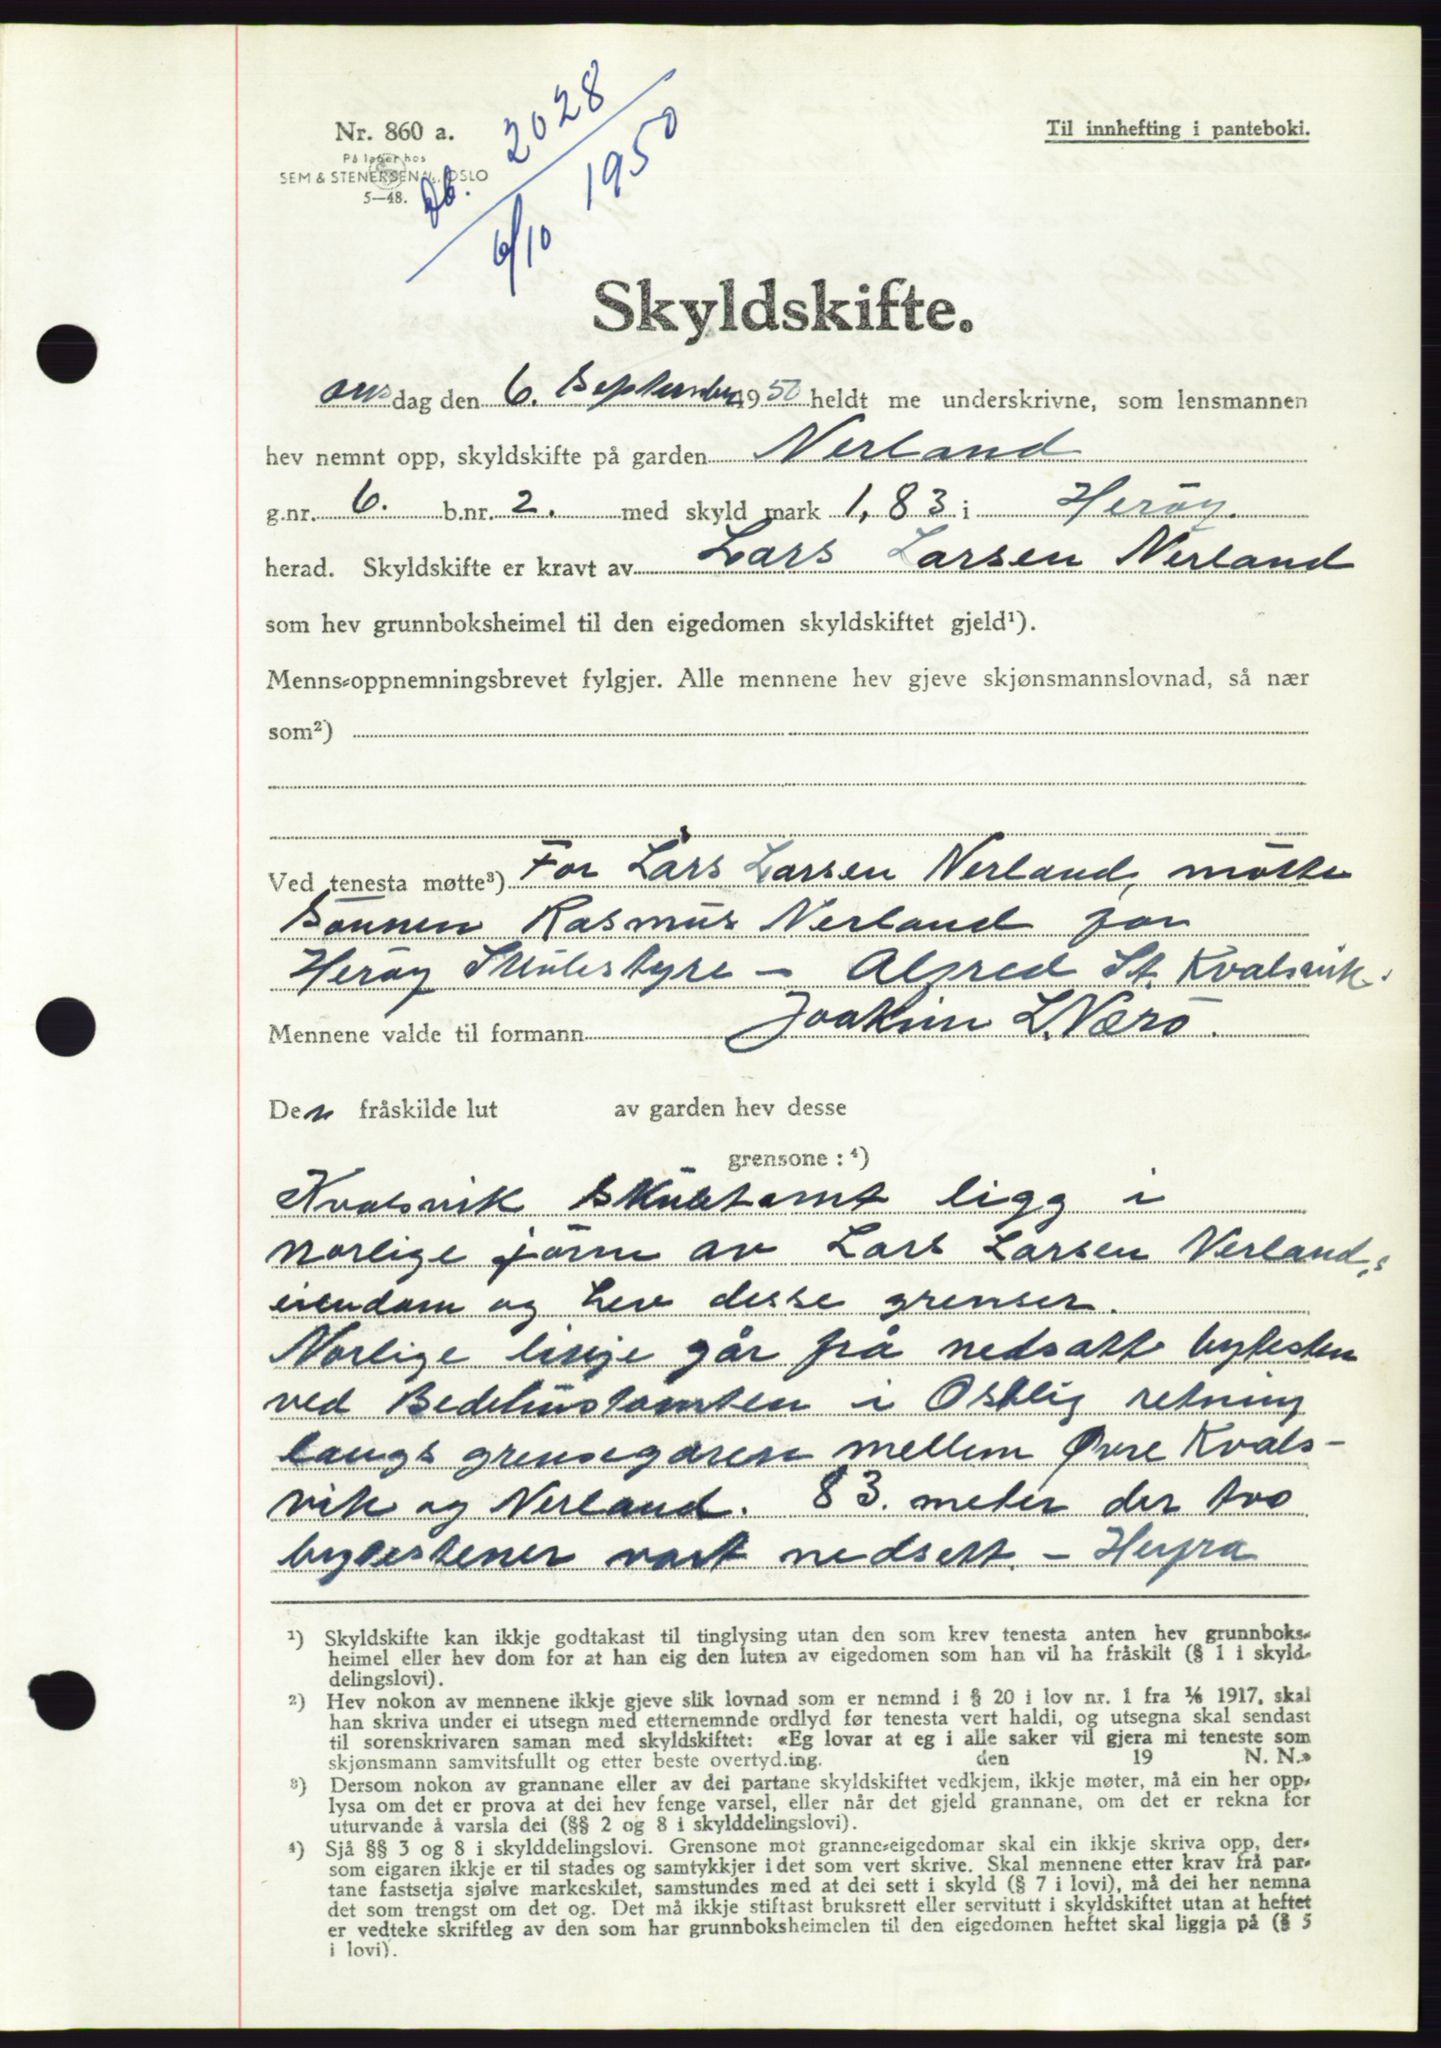 Nr. 860 a.
På lager hos
SEM & STENERSEN A/S, OSLO
5—48.
Til innhefting i panteboki.
Db. 2028
6/10 1950
Skyldskifte.
ons dag den 6. September 1950 heldt me underskrivne, som lensmannen
hev nemnt opp, skyldskifte på garden Nerland
g.nr. 6. b.nr. 2. med skyld mark 1,83 i Herøy.
herad. Skyldskifte er kravt av Lars Larsen Nerland
som hev grunnboksheimel til den eigedomen skyldskiftet gjeld¹).
Menns-oppnemningsbrevet fylgjer. Alle mennene hev gjeve skjønsmannslovnad, så nær
som²)
Ved tenesta møtte³) For Lars Larsen Nerland, møtte
Sønnen Rasmus Nerland for
Herøy Skulestyre — Alfred St. Kvalsvik.
Mennene valde til formann Joakim L. Nærø.
Den fråskilde lut av garden hev desse
grensone: ⁴)
Kvalsvik Skultomt ligg i
norlige jörne av Lars Larsen Nerlands
eiendom og hev desse grenser.
Norlige linje går frå nedsatt bytesten
ved Bedehustomten i Østlig retning
langs grensegaren mellem Øvre Kvals-
vik og Nerland. 83. meter der tvo
bytestener vart nedsett. — Herfra
¹) Skyldskifte kan ikkje godtakast til tinglysing utan den som krev tenesta anten hev grunnboks-
heimel eller hev dom for at han eig den luten av eigedomen som han vil ha fråskilt (§ 1 i skyld-
delingslovi).
²) Hev nokon av mennene ikkje gjeve slik lovnad som er nemnd i § 20 i lov nr. 1 fra 1/6 1917, skal
han skriva under ei utsegn med etternemnde ordlyd før tenesta vert haldi, og utsegna skal sendast
til sorenskrivaren saman med skyldskiftet: «Eg lovar at eg i alle saker vil gjera mi teneste som
skjønsmann samvitsfullt og etter beste overtyd.ing. den 19 N. N.»
³) Dersom nokon av grannane eller av dei partane skyldskiftet vedkjem, ikkje møter, må ein her opp-
lysa om det er prova at dei hev fenge varsel, eller når det gjeld grannane, om det er rekna for
uturvande å varsla dei (§§ 2 og 8 i skylddelingslovi).
⁴) Sjå §§ 3 og 8 i skylddelingslovi. Grensone mot granne-eigedomar skal ein ikkje skriva opp, der-
som eigaren ikkje er til stades og samtykkjer i det som vert skrive. Skal mennene etter krav frå par-
tane fastsetja sjølve markeskilet, samstundes med at dei sett i skyld (§ 7 i lovi), må dei her nemna
det som trengst om det og. Det må ikkje stiftast bruksrett eller servitutt i skyldskiftet utan at heftet
er vedteke skriftleg av den som har grunnboksheimelen til den eigedomen heftet skal liggja på (§ 5
i lovi).